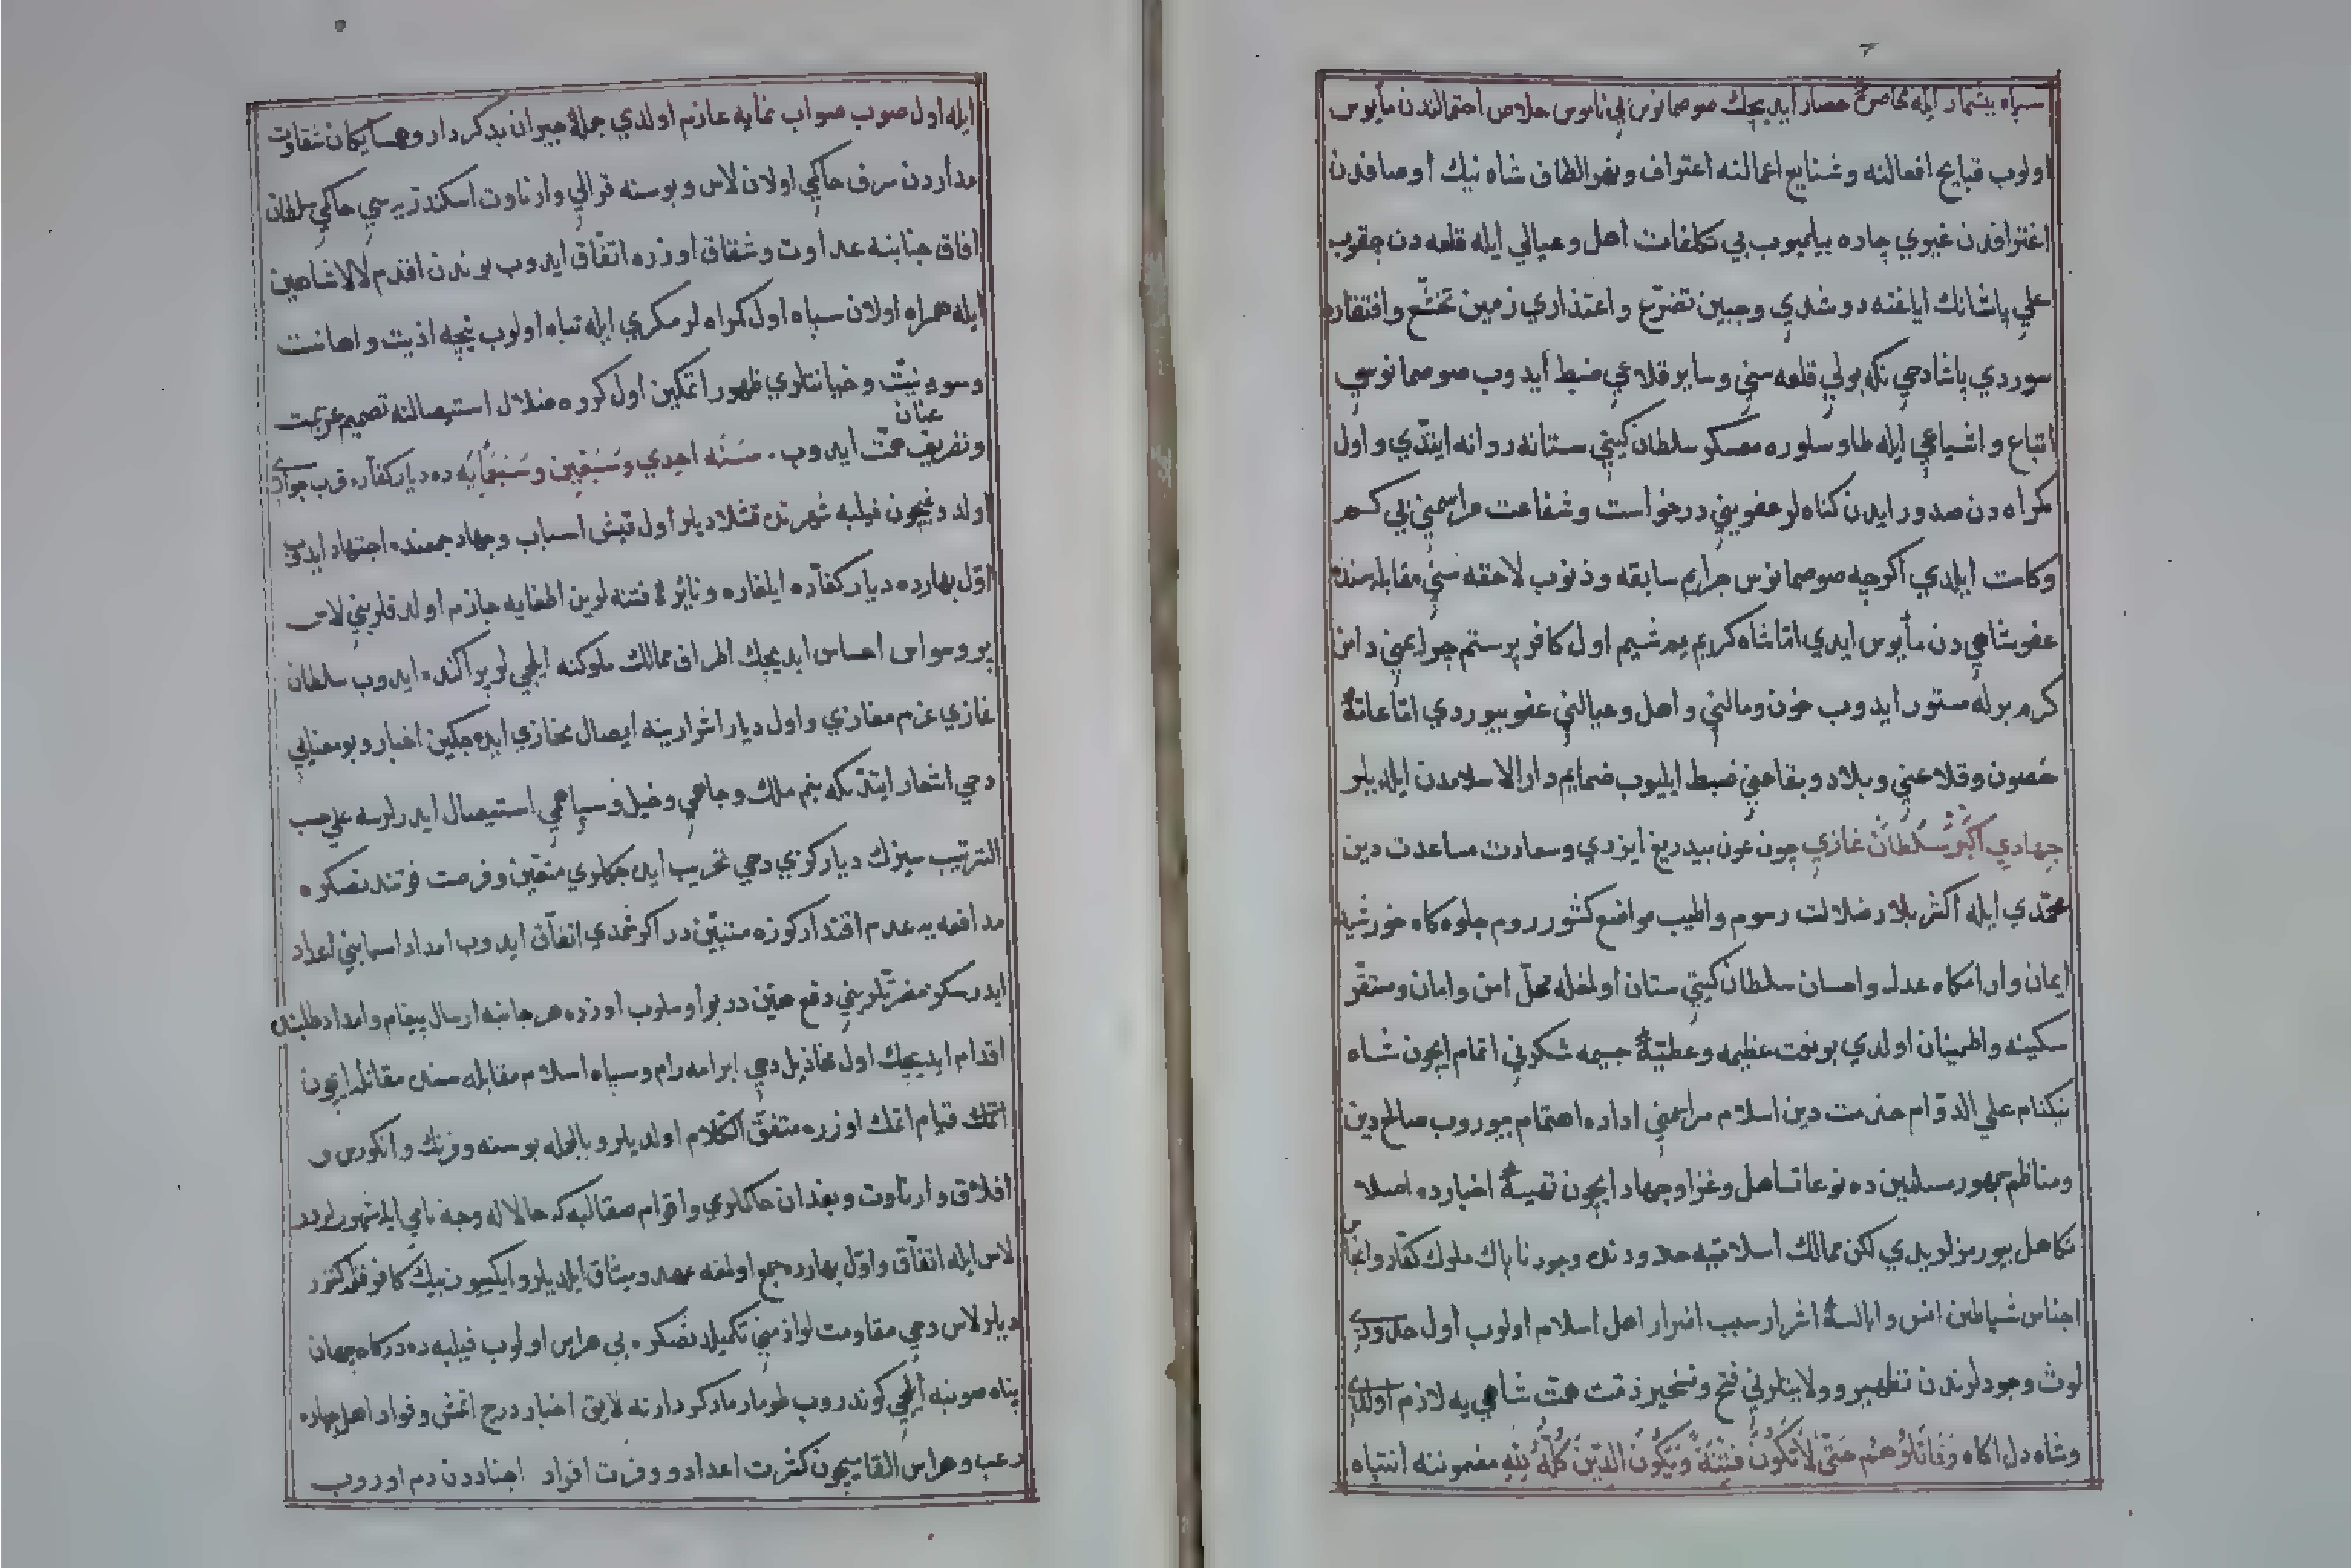 سپاه بیشمار ایله محاصرۀ حصار ایدیجك صوصمانوس بي ناموس خلاص احتمالندن مأیوس
اولوب قبایح افعالنه وشنایع اعمالنه اعتراف وبحر الطاف شاه نیك اوصافدن
اغترافدن غیري چاره بیلمیوب بي تكلفات اهل وعیالي ایله قلعه دن چقوب
علي پاشانك ایاغنه دوشدي وجبین تضرّع واعتذاري زمین تخشّع وافتقاره
سوردي پاشا دخي نكه بولي قلعه سني وسایر قلاعي ضبط ایدوب صوصمانوسي
اتباع واشیاعي ایله طاوسلوره معسكر سلطان كیتي ستانه روانه ایتدي واول
كمراه دن صدور ایدن كناه لر عفویني درخواست وشفاعت مراسمني بي كم
وكاست ایلدي اكرچه صوصمانوس جرایم سابقه وذنوب لاحقه سني مقابله سنده
عفو شاهي دن مأیوس ایدي امّا شاه كریم شیم اول كافر پرستم جرایمني دامن
كرم برله مستور ایدوب خون ومالني واهل وعیالني عفو بیوردي امّا عامّۀ
حصون وقلاعني وبلاد وبقاعني ضبط ایلیوب ضمایم دار الاسلامدن ایلدیلر
جهادي اكبر سلطان غازي چون عون بیدریغ ایزدي وسعادت مساعدت دین
محمّدي ایله اكثر بلاد ضلالت رسوم واطیب مواضع كشور روم جلوه كاه خورشید
ایمان وارامكاه عدل واحسان سلطان كیتي ستان اولمغله محلّ امن وامان ومستقرّ
سكینه واطمینان اولدي بو نعمت عظیمه وعطیّۀ جسیمه شكرني اتمام ایچون شاه
نیكنام علي الدوام خدمت دین اسلام مراسمني اداده اهتمام بیوروب صالح دین
ومناظم جمهور مسلمین ده نوعا تساهل وغزا وجهاد ایچون تهیۀ اخبارده اصلا
تكاهل بیورمزلر یدي لكن ممالك اسلامیّه حدودنده وجود ناپاك ملوك كفّار وانجاس
اجناس شیاطین انس وابالسۀ اشرار سبب اضرار اهل اسلام اولوب اول حدودي
لوث وجودلرندن تطهیر وولایتلرني فتح وتسخیر ذمّت همّت شاهي یه لازم اولدي
وشاه دل اكاه وَقَاتِلُوهُمْ حَتَّىٰ لَا تَكُونَ فِتْنَةٌ وَيَكُونَ الدِّينُ كُلُّهُ لِلَّهِ مضموننه انتباه
ایله اول صوب صواب نمایه عازم اولدي جملۀ جیران بدكردار وهمسایكان شقاوت
مداردن سرف حاكمي اولان لاس وبوسنه قرالي وارناوت اسكندریه سي حاكمي سلطان
افاق جنابنه عداوت وشقاق اوزره اتفّاق ایدوب بوندن اقدم لالا شاهین
ایله همراه اولان سپاه اول كمراه لر مكري ایله تباه اولوب نیجه اذیت واهانت
وسوء نیّت وخیانتلري ظهور اتمكین اول كروه ضلال استیصالنه تصمیم عزیمت
وتصریف عنان همّت ایدوب . سَنَه احدي وسَبْعِین وسَبْعَمِایَه ده دیار كفّاره قرب جواري
اولدوغیچون فیلبه شهرنده قشلادیلر اول قیش اسباب جهاد جمعنده اجتهاد ایدوب
اوّل بهارده دیار كفّاره ایلغاره ونائرۀ فتنه لرین اطفایه جازم اولدقلریني لاس
پر وسواس احساس ایدیجك اطراف ممالك ملوكنه ایلچي لر پراكنده ایدوب سلطان
غازي عزم مغازي واول دیار اشرارینه ایصال مخازي ایده جكین اخبار وبو معنایي
دخي اشعار ایتدیكه بنم ملك وجاهي وخیل وسپاهمي استیصال ایدرلرسه علي حسب
الترتیب سیزك دیاركزي دخي تخریب ایده جكلري متعیّن وفرصت فوتندنصكره
مدافعه یه عدم اقتداركز متبیّن در اكر شمدي اتفّاق ایدوب امداد اسبابني اعداد
ایدرسكز مضرّتلریني دفع هیّن در بو اسلوب اوزره هر جانبه ارسال پیغام وامداد طلبنده
اقدام ایدیجك اول مخاذیل دخي ابرامه رام وسپاه اسلام مقابله سنده مقاتله ایچون
اتمك قیام اتمك اوزره متفق الكلام اولدیلر وبالجمله بوسنه وفرنك وانكورس و
افلاق وارناوت وبغدان حاكملري واقوام صقالبه كه حالا له وجه نامي ایله مشهورلردر
لاس ایله اتفّاق واوّل بهارده جمع اولمغه عهد ومیثاق ایلدیلر وایكییوز بیك كافر فكر كتورر
دیلر لاس دخي مقاومت لوازمني تكمیلدنصكره بي هراس اولوب فیلبه ده دركاه جهان
پناه صوبنه ایلچي كوندروب طومار مار كردارنه لایق اخبار درج اتمش وفواد اهل جهاده
رعب وهراس القا سیچون كثرت اعداد ووفرت افراد اجناددن دم اوروب